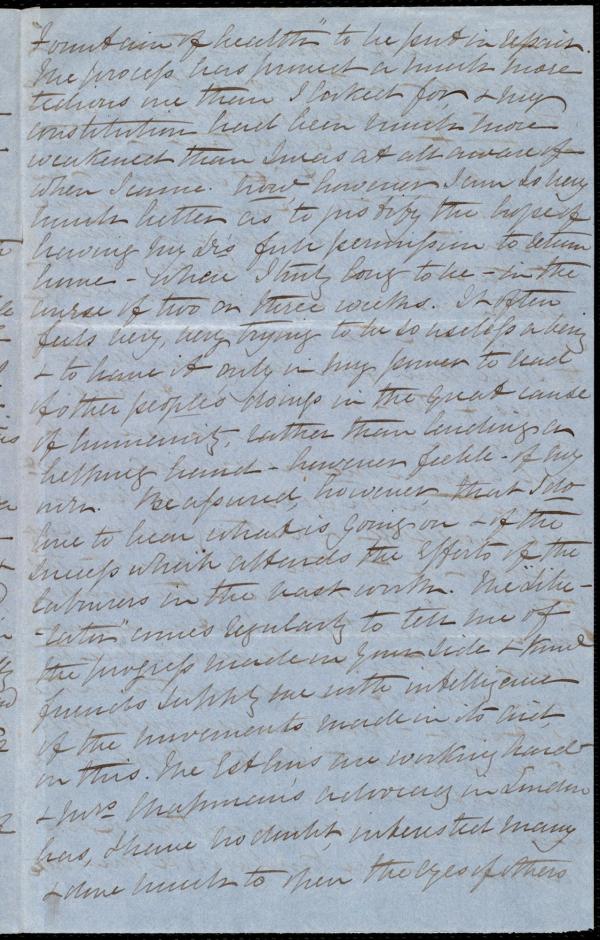 Fountain of health" to be put in repair.
The process has proved a much more
tedious one than I looked for, & my
constitution had been much more
weakened than I was at all aware of
when I came. Now however I am so very
much better as to justify the hope of
having my Dr's full permission to return
home - where I truly long to be - in the
course of two or three weeks. It often
feels very, very trying to be so useless a being
& to have it only in my power to read
of other peoples doings in the great cause
of humanity, rather than lending a
helping hand - however feeble - of my
own. Be assured, however, that I do
love to hear what is going on & of the
success which attends the efforts of the
labourers in the vast work. The "Libe-
-rator" comes regularly to tell me of
the progress made on your side & kind
friends supply me with intelligence
of the movements made in its aid
on this. The Estlins are working hard
& Mrs Chapman's advocacy in London
has, I have no doubt, interested many
& done much to open the eyes of others